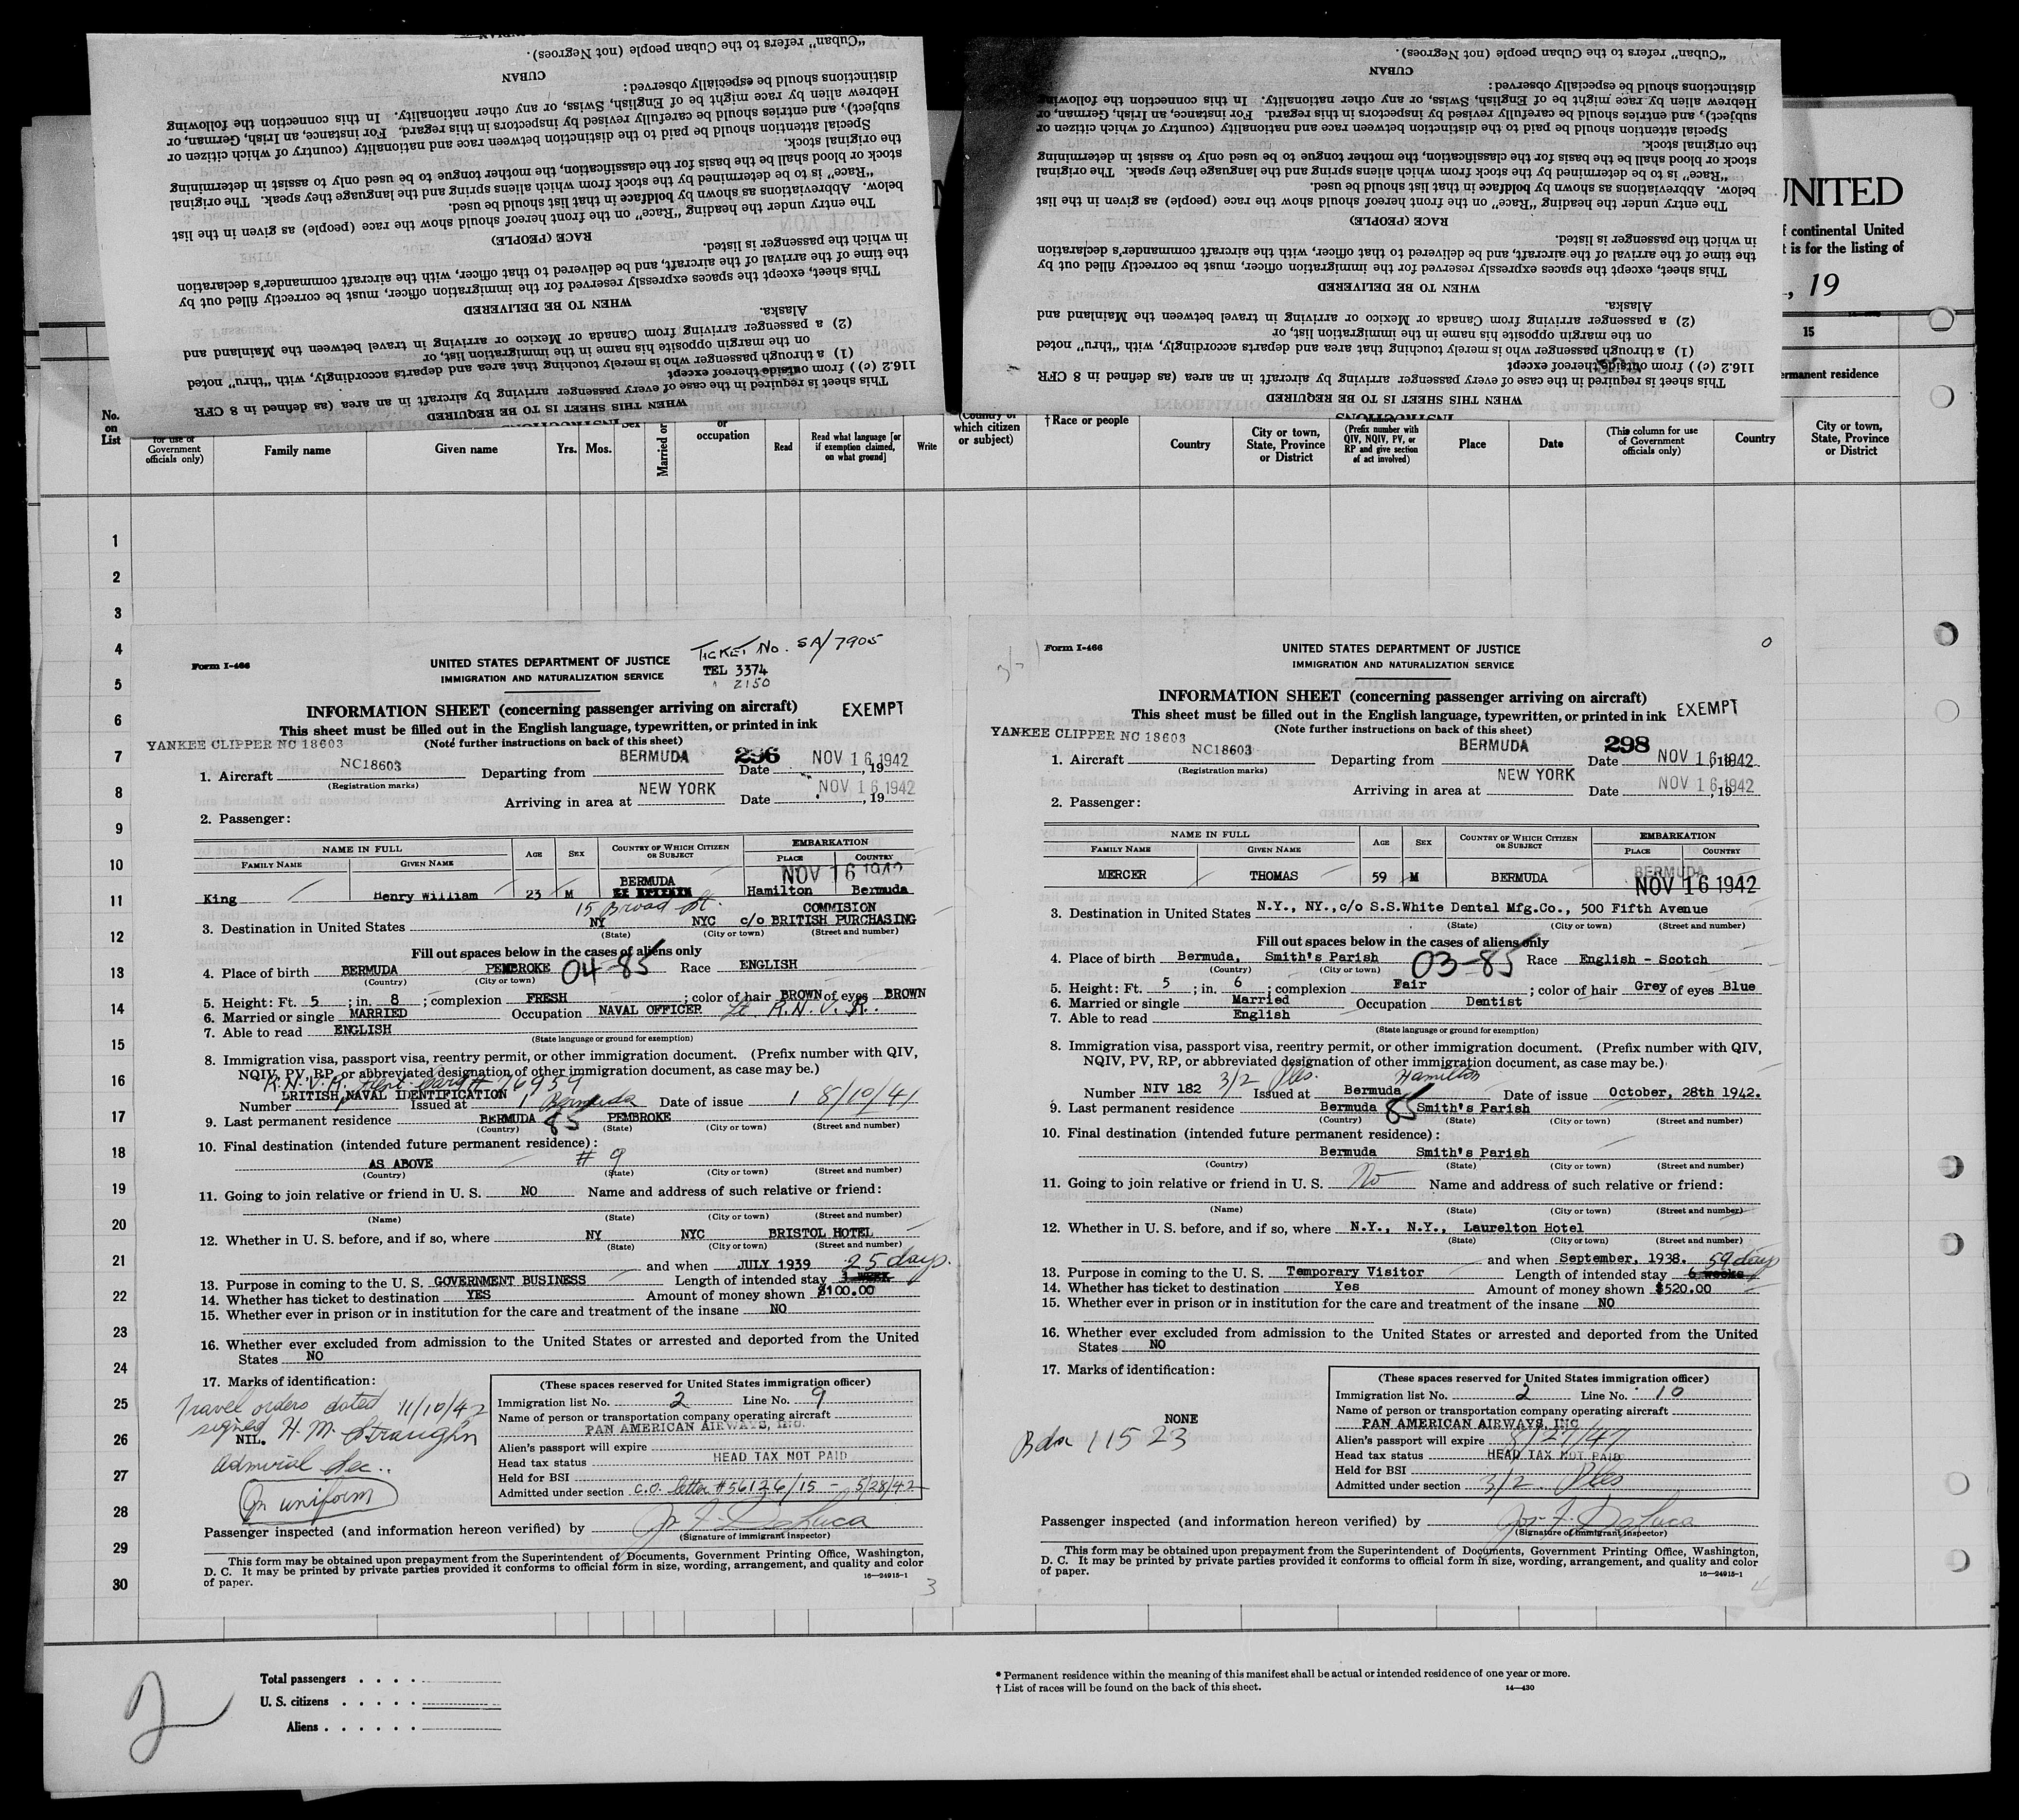 "Cuban" refers to the Cuban people (not Negroes).
CUBAN
distinctions should be especially observed:
Hebrew alien by race might be of English, Swiss, or any other nationality. In this connection the following
subject), and entries should be carefully revised by inspectors in this regard. For instance, an Irish, German, or
Special attention should be paid to the distinction between race and nationality (country of which citizen or
the original stock.
stock or blood shall be the basis for the classification, the mother tongue to be used only to assist in determining
"Race" is to be determined by the stock from which aliens spring and the language they speak. The original
below. Abbreviations as shown by boldface in that list should be used.
The entry under the heading "Race" on the front hereof should show the race (people) as given in the list
RACE (PEOPLE)
in which the passenger is listed.
the time of the arrival of the aircraft, and be delivered to that officer, with the aircraft commander's declaration
This sheet, except the spaces expressly reserved for the immigration officer, must be correctly filled out by
WHEN TO BE DELIVERED
Alaska.
(2) a passenger arriving from Canada or Mexico or arriving in travel between the Mainland and
on the margin opposite his name in the immigration list, or
(1) a through passenger who is merely touching that area and departs accordingly, with "thru" noted
116.2 (c)) from outside thereof except
This sheet is required in the case of every passenger arriving by aircraft in an area (as defined in 8 CFR
WHEN THIS SHEET IS TO BE REQUIRED
INSTRUCTIONS
"Cuban" refers to the Cuban people (not Negroes).
CUBAN
distinctions should be especially observed:
Hebrew alien by race might be of English, Swiss, or any other nationality. In this connection the following
subject), and entries should be carefully revised by inspectors in this regard. For instance, an Irish, German, or
Special attention should be paid to the distinction between race and nationality (country of which citizen or
the original stock.
stock or blood shall be the basis for the classification, the mother tongue to be used only to assist in determining
"Race" is to be determined by the stock from which aliens spring and the language they speak. The original
below. Abbreviations as shown by boldface in that list should be used.
The entry under the heading "Race" on the front hereof should show the race (people) as given in the list
RACE (PEOPLE)
in which the passenger is listed.
the time of the arrival of the aircraft, and be delivered to that officer, with the aircraft commander's declaration
This sheet, except the spaces expressly reserved for the immigration officer, must be correctly filled out by
WHEN TO BE DELIVERED
Alaska.
(2) a passenger arriving from Canada or Mexico or arriving in travel between the Mainland and
on the margin opposite his name in the immigration list, or
(1) a through passenger who is merely touching that area and departs accordingly, with "thru" noted
116.2 (c)) from outside thereof except
This sheet is required in the case of every passenger arriving by aircraft in an area (as defined in 8 CFR
WHEN THIS SHEET IS TO BE REQUIRED
INSTRUCTIONS
UNITED
f continental United
t is for the listing of
, 19
15
ermanent residence
No. on List
for use of Government officials only)
Family name
Given name
Yrs.
Mos.
Married or
or occupation
Read
Read what language [or if exemption claimed, on what ground]
Write
(Country of which citizen or subject)
† Race or people
Country
City or town, State, Province or District
(Prefix number with QIV, NQIV, PV, or RP and give section of act involved)
Place
Date
(This column for use of Government officials only)
Country
City or town, State, Province or District
1
2
3
4
5
6
7
8
9
10
11
12
13
14
15
16
17
18
19
20
21
22
23
24
25
26
27
28
29
30
Form I-466
TICKET No. SA/7905
UNITED STATES DEPARTMENT OF JUSTICE
TEL 3374
IMMIGRATION AND NATURALIZATION SERVICE
" 2150
INFORMATION SHEET (concerning passenger arriving on aircraft)
EXEMPT
This sheet must be filled out in the English language, typewritten, or printed in ink
YANKEE CLIPPER NC 18603
(Note further instructions on back of this sheet)
1. Aircraft NC18603 Departing from BERMUDA 296 Date NOV 16 1942, 19
(Registration marks)
Arriving in area at NEW YORK Date NOV 16 1942, 19
2. Passenger:
NAME IN FULL
AGE
SEX
COUNTRY OF WHICH CITIZEN OR SUBJECT
EMBARKATION
FAMILY NAME
GIVEN NAME
PLACE
COUNTRY
NOV 16 1942
King Henry William 23 M BERMUDA Hamilton Bermuda
15 Broad St. COMMISION
3. Destination in United States NY NYC c/o BRITISH PURCHASING
(State) (City or town) (Street and number)
Fill out spaces below in the cases of aliens only
4. Place of birth BERMUDA PEMBROKE 04-85 Race ENGLISH
(Country) (City or town)
5. Height: Ft. 5; in. 8; complexion FRESH; color of hair BROWN of eyes BROWN
6. Married or single MARRIED Occupation NAVAL OFFICER Lt. R.N.V.R.
7. Able to read ENGLISH
(State language or ground for exemption)
8. Immigration visa, passport visa, reentry permit, or other immigration document. (Prefix number with QIV,
NQIV, PV, RP, or abbreviated designation of other immigration document, as case may be.)
R.N.V.R. Ident. Card # 76959
BRITISH NAVAL IDENTIFICATION
Number Issued at Bermuda Date of issue 8/10/41
9. Last permanent residence BERMUDA 85 PEMBROKE
(Country) (State) (City or town) (Street and number)
10. Final destination (intended future permanent residence):
AS ABOVE # 9
(Country) (State) (City or town) (Street and number)
11. Going to join relative or friend in U. S. NO Name and address of such relative or friend:
(Name) (State) (City or town) (Street and number)
12. Whether in U. S. before, and if so, where NY NYC BRISTOL HOTEL
(State) (City or town) (Street and number)
and when JULY 1939 25 days.
13. Purpose in coming to the U. S. GOVERNMENT BUSINESS Length of intended stay 1 WEEK
14. Whether has ticket to destination YES Amount of money shown $100.00
15. Whether ever in prison or in institution for the care and treatment of the insane NO
16. Whether ever excluded from admission to the United States or arrested and deported from the United
States NO
17. Marks of identification:
Travel orders dated 11/10/42
signed H. M. Straughn
NIL.
Admiral Sec.
In uniform
(These spaces reserved for United States immigration officer)
Immigration list No. 2 Line No. 9
Name of person or transportation company operating aircraft
PAN AMERICAN AIRWAYS, INC.
Alien's passport will expire
Head tax status HEAD TAX NOT PAID
Held for BSI
Admitted under section C.O. letter #56126/15 - 5/28/42
Passenger inspected (and information hereon verified) by Jos. F. DeLuca
(Signature of immigrant inspector)
This form may be obtained upon prepayment from the Superintendent of Documents, Government Printing Office, Washington,
D. C. It may be printed by private parties provided it conforms to official form in size, wording, arrangement, and quality and color
of paper.
16—24915-1
3
Form I-466
0
UNITED STATES DEPARTMENT OF JUSTICE
IMMIGRATION AND NATURALIZATION SERVICE
INFORMATION SHEET (concerning passenger arriving on aircraft)
EXEMPT
This sheet must be filled out in the English language, typewritten, or printed in ink
YANKEE CLIPPER NC 18603
(Note further instructions on back of this sheet)
1. Aircraft NC18603 Departing from BERMUDA 298 Date NOV 16 1942, 19
(Registration marks)
Arriving in area at NEW YORK Date NOV 16 1942, 19
2. Passenger:
NAME IN FULL
AGE
SEX
COUNTRY OF WHICH CITIZEN OR SUBJECT
EMBARKATION
FAMILY NAME
GIVEN NAME
PLACE
COUNTRY
BERMUDA
MERCER THOMAS 59 M BERMUDA NOV 16 1942
3. Destination in United States N.Y., NY.,c/o S.S.White Dental Mfg.Co., 500 Fifth Avenue
(State) (City or town) (Street and number)
Fill out spaces below in the cases of aliens only
4. Place of birth Bermuda, Smith's Parish 03-85 Race English - Scotch
(Country) (City or town)
5. Height: Ft. 5; in. 6; complexion Fair; color of hair Grey of eyes Blue
6. Married or single Married Occupation Dentist
7. Able to read English
(State language or ground for exemption)
8. Immigration visa, passport visa, reentry permit, or other immigration document. (Prefix number with QIV,
NQIV, PV, RP, or abbreviated designation of other immigration document, as case may be.)
Number NIV 182 3/2 Issued at Bermuda Hamilton Date of issue October, 28th 1942.
9. Last permanent residence Bermuda 85 Smith's Parish
(Country) (State) (City or town) (Street and number)
10. Final destination (intended future permanent residence):
Bermuda Smith's Parish
(Country) (State) (City or town) (Street and number)
11. Going to join relative or friend in U. S. No Name and address of such relative or friend:
(Name) (State) (City or town) (Street and number)
12. Whether in U. S. before, and if so, where N.Y., N.Y., Laurelton Hotel
(State) (City or town) (Street and number)
and when September, 1938. 59 days
13. Purpose in coming to the U. S. Temporary Visitor Length of intended stay 6 weeks
14. Whether has ticket to destination Yes Amount of money shown $520.00
15. Whether ever in prison or in institution for the care and treatment of the insane NO
16. Whether ever excluded from admission to the United States or arrested and deported from the United
States NO
17. Marks of identification:
NONE
Bda 11523
(These spaces reserved for United States immigration officer)
Immigration list No. 2 Line No. 10
Name of person or transportation company operating aircraft
PAN AMERICAN AIRWAYS, INC
Alien's passport will expire 8/27/47
Head tax status HEAD TAX NOT PAID
Held for BSI
Admitted under section 3/2
Passenger inspected (and information hereon verified) by Jos. F. DeLuca
(Signature of immigrant inspector)
This form may be obtained upon prepayment from the Superintendent of Documents, Government Printing Office, Washington,
D. C. It may be printed by private parties provided it conforms to official form in size, wording, arrangement, and quality and color
of paper.
16—24915-1
4
2
Total passengers . . . .
U. S. citizens . . . . .
Aliens . . . . . .
* Permanent residence within the meaning of this manifest shall be actual or intended residence of one year or more.
† List of races will be found on the back of this sheet.
14—430